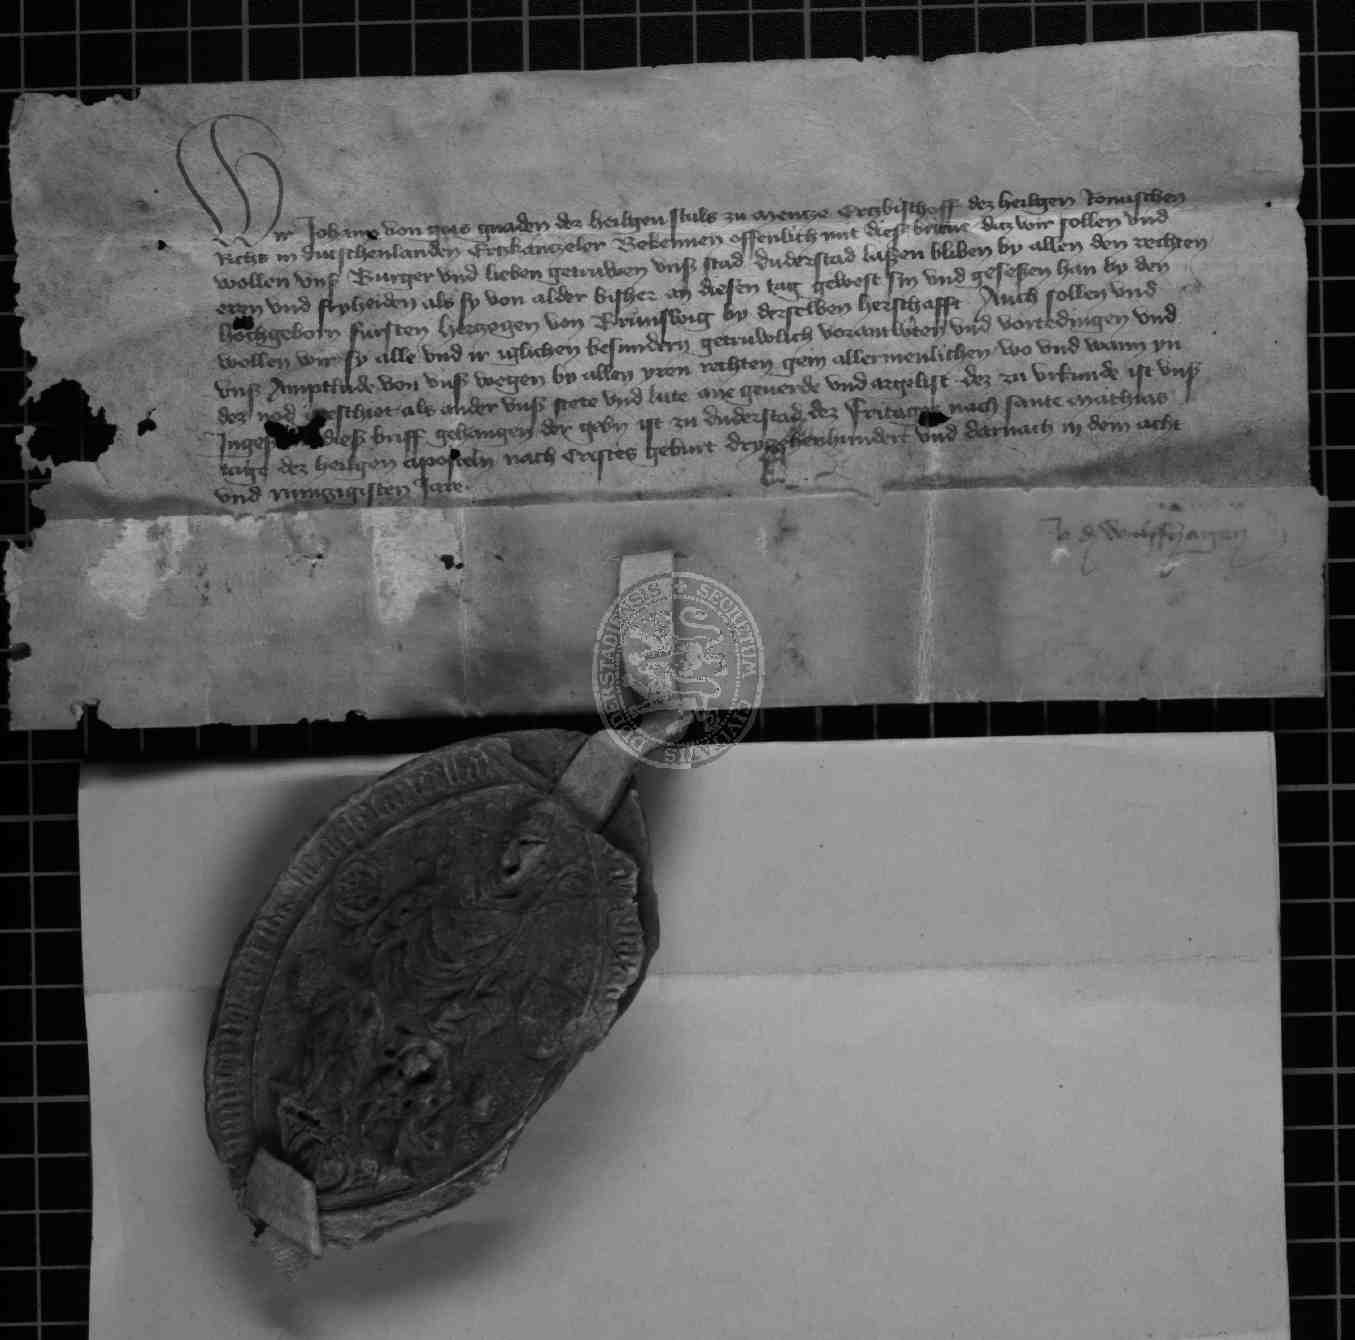 Wir Johann von gots gnaden des heilgen stuls zu Mentze Ertzbischoff des heilgen Romischen
Richs in dutschenlanden Ertzkanczeler Bekennen offenlich mit dies brieue daz wir sollen vnd
wollen vnß Burger vnd lieben getruwen vnß stad Duderstad laßen bliben by allen den rechten
eren vnd fryheiden als sy von alder bisher an diesen tag gewest sin vnd geseßen han by den
hochgeborn fursten Herczogen von Brunswig by derselben herschafft Auch sollen vnd
wollen wir sy alle vnd ir iglichen besundern getruwlich vorantwten vnd vortedingen vnd
vnß Amptlude von vnß wegen by allen yren rechten gein allermenlichen wo vnd wann yn
dez nod geschiet als ander vnß stete vnd lute ane geuerde vnd argelist dez zu vrkunde ist vnß
Ingeß dieß briff gehangen der gebn ist zu Duderstad dez Fritages nach sante Mathias
tage dez heilgen aposteln nach Cristes geburt dryzehenhundert vnd darnach in dem acht
vnd nunczigisten Jare
SECRETUM CIVITATIS DUDERSTADIENSIS